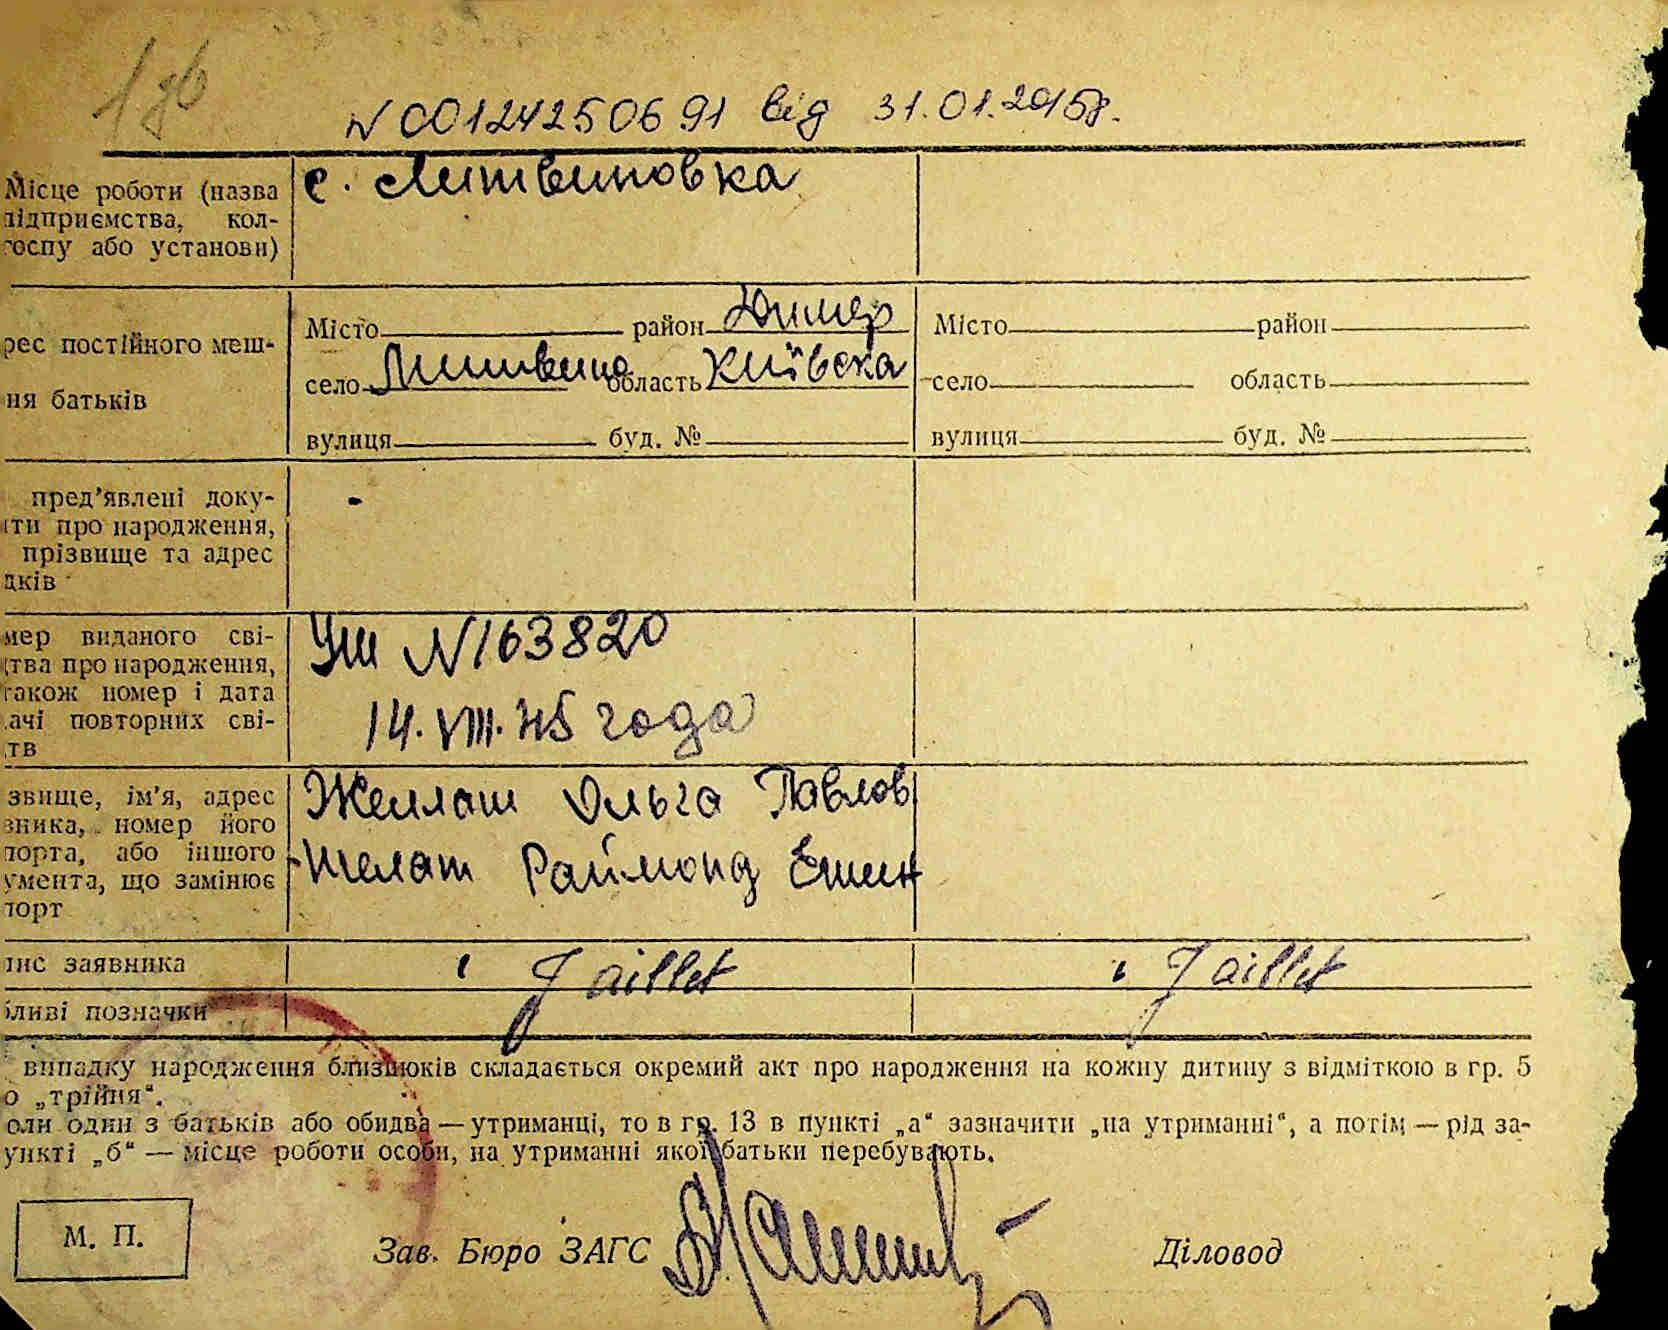 N 00124250691 від 31.01.2015р.
Місце роботи (назва
підприємства, кол-
госпу або установи)
с. Литвиновка
рес постійного меш-
ня батьків
Місто район Димер
село Литвино область Київска
вулиця буд. №
Місто район
село область
вулиця буд. №
пред'явлені доку-
ти про народження,
прізвище та адрес
дків
-
мер виданого сві-
цтва про народження,
також номер і дата
ачі повторних сві-
тв
УШ N163820
14.VIII.45 года
звище, ім'я, адрес
вника, номер його
порта, або іншого
умента, що замінює
порт
Желлаш Ольга Павлов
Желат Раймонд
пис заявника
Jaillet
Jaillet
ливі позначки
випадку народження близнюків складається окремий акт про народження на кожну дитину з відміткою в гр. 5
о „трійня“.
оли один з батьків або обидва — утриманці, то в гр. 13 в пункті „а“ зазначити „на утриманні“, а потім — рід за-
ункті „б“ — місце роботи особи, на утриманні якої батьки перебувають.
М. П.
Зав. Бюро ЗАГС
Діловод